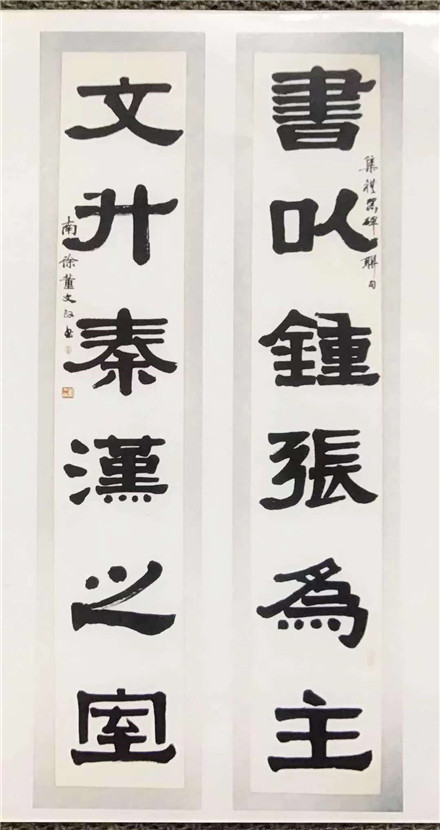 書以鍾張為主
集禮器碑聯句
文升秦漢之室
南徐董文